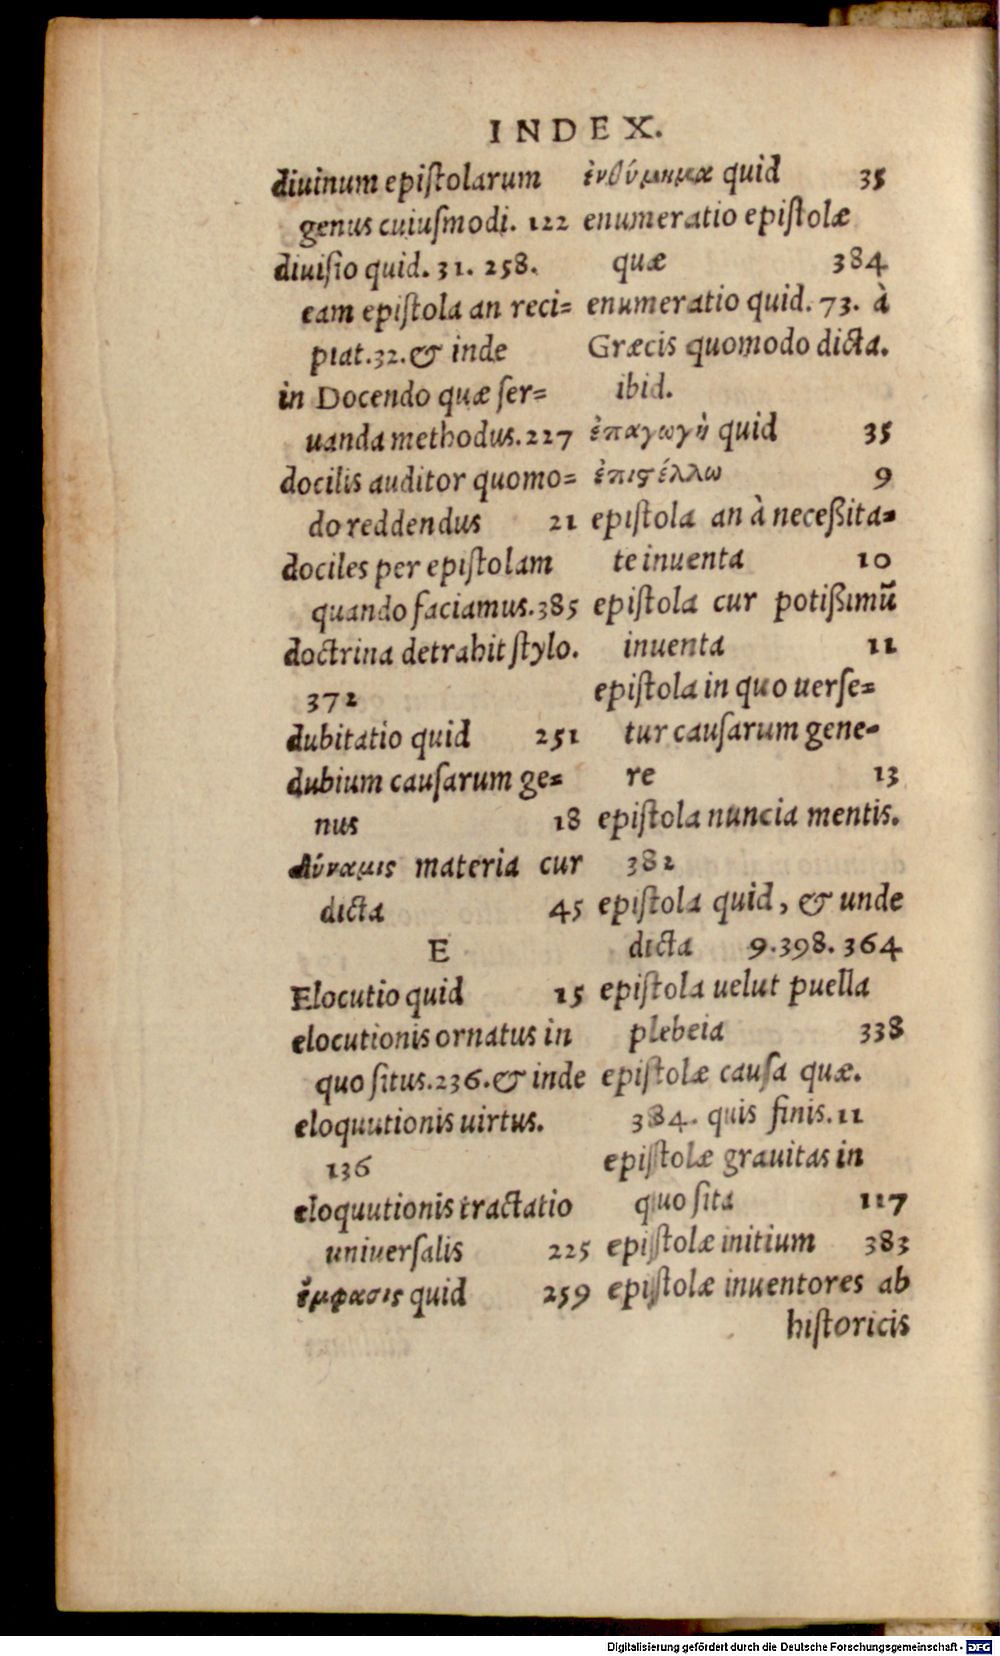 INDEX.
diuinum epiſtolarum
genus cuiuſmodi. 122
diuiſio quid. 31. 258.
eam epiſtola an reci=
piat. 32. & inde
in Docendo quæ ſer=
uanda methodus. 227
docilis auditor quomo=
do reddendus 21
dociles per epiſtolam
quando faciamus. 385
doctrina detrahit ſtylo.
372
dubitatio quid 251
dubium cauſarum ge=
nus 18
δύναμις materia cur
dicta 45
E
Elocutio quid 15
elocutionis ornatus in
quo ſitus. 236. & inde
eloquutionis uirtus.
136
eloquutionis tractatio
uniuerſalis 225
ἔμφασις quid 259
ἐνθύμημα quid 35
enumeratio epiſtolæ
quæ 384
enumeratio quid. 73. à
Græcis quomodo dicta.
ibid.
ἐπαγωγὴ quid 35
ἐπιϛέλλω 9
epiſtola an à neceßita=
te inuenta 10
epiſtola cur potißimũ
inuenta 11
epiſtola in quo uerſe=
tur cauſarum gene=
re 13
epiſtola nuncia mentis.
382
epiſtola quid, & unde
dicta 9. 398. 364
epiſtola uelut puella
plebeia 338
epiſtolæ cauſa quæ.
384. quis finis. 11
epiſtolæ grauitas in
quo ſita 117
epiſtolæ initium 383
epiſtolæ inuentores ab
hiſtoricis
Digitalisierung gefördert durch die Deutsche Forschungsgemeinschaft - DFG